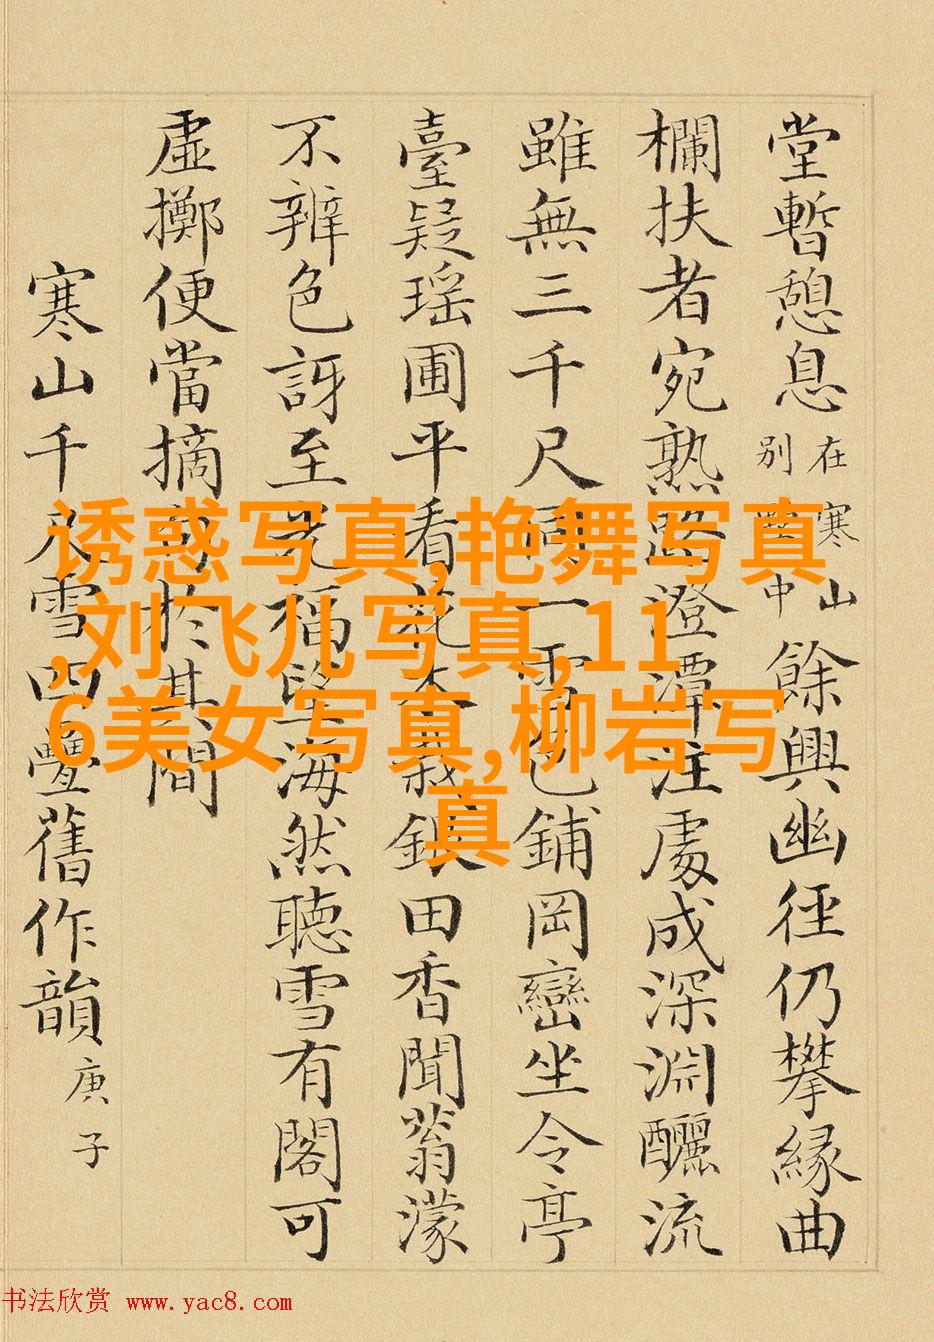 堂暫憩息在寒山別墅中餘興幽徑仍攀緣曲
欄扶者宛熟路澄潭注處成深淵釃流
雖無三千尺一雪色鋪岡巒坐令亭
臺疑瑤圃平看花木栽銀田香聞蓊濛
不辨色訝至先稱望海然聽雪有閣可
虛擲便當摘句於其間
寒山千尺雪四疊舊作韻庚子
诱惑写真,艳舞写真
,刘飞儿写真,11
6美女写真,柳岩写
真
书法欣赏 www.yac8.com